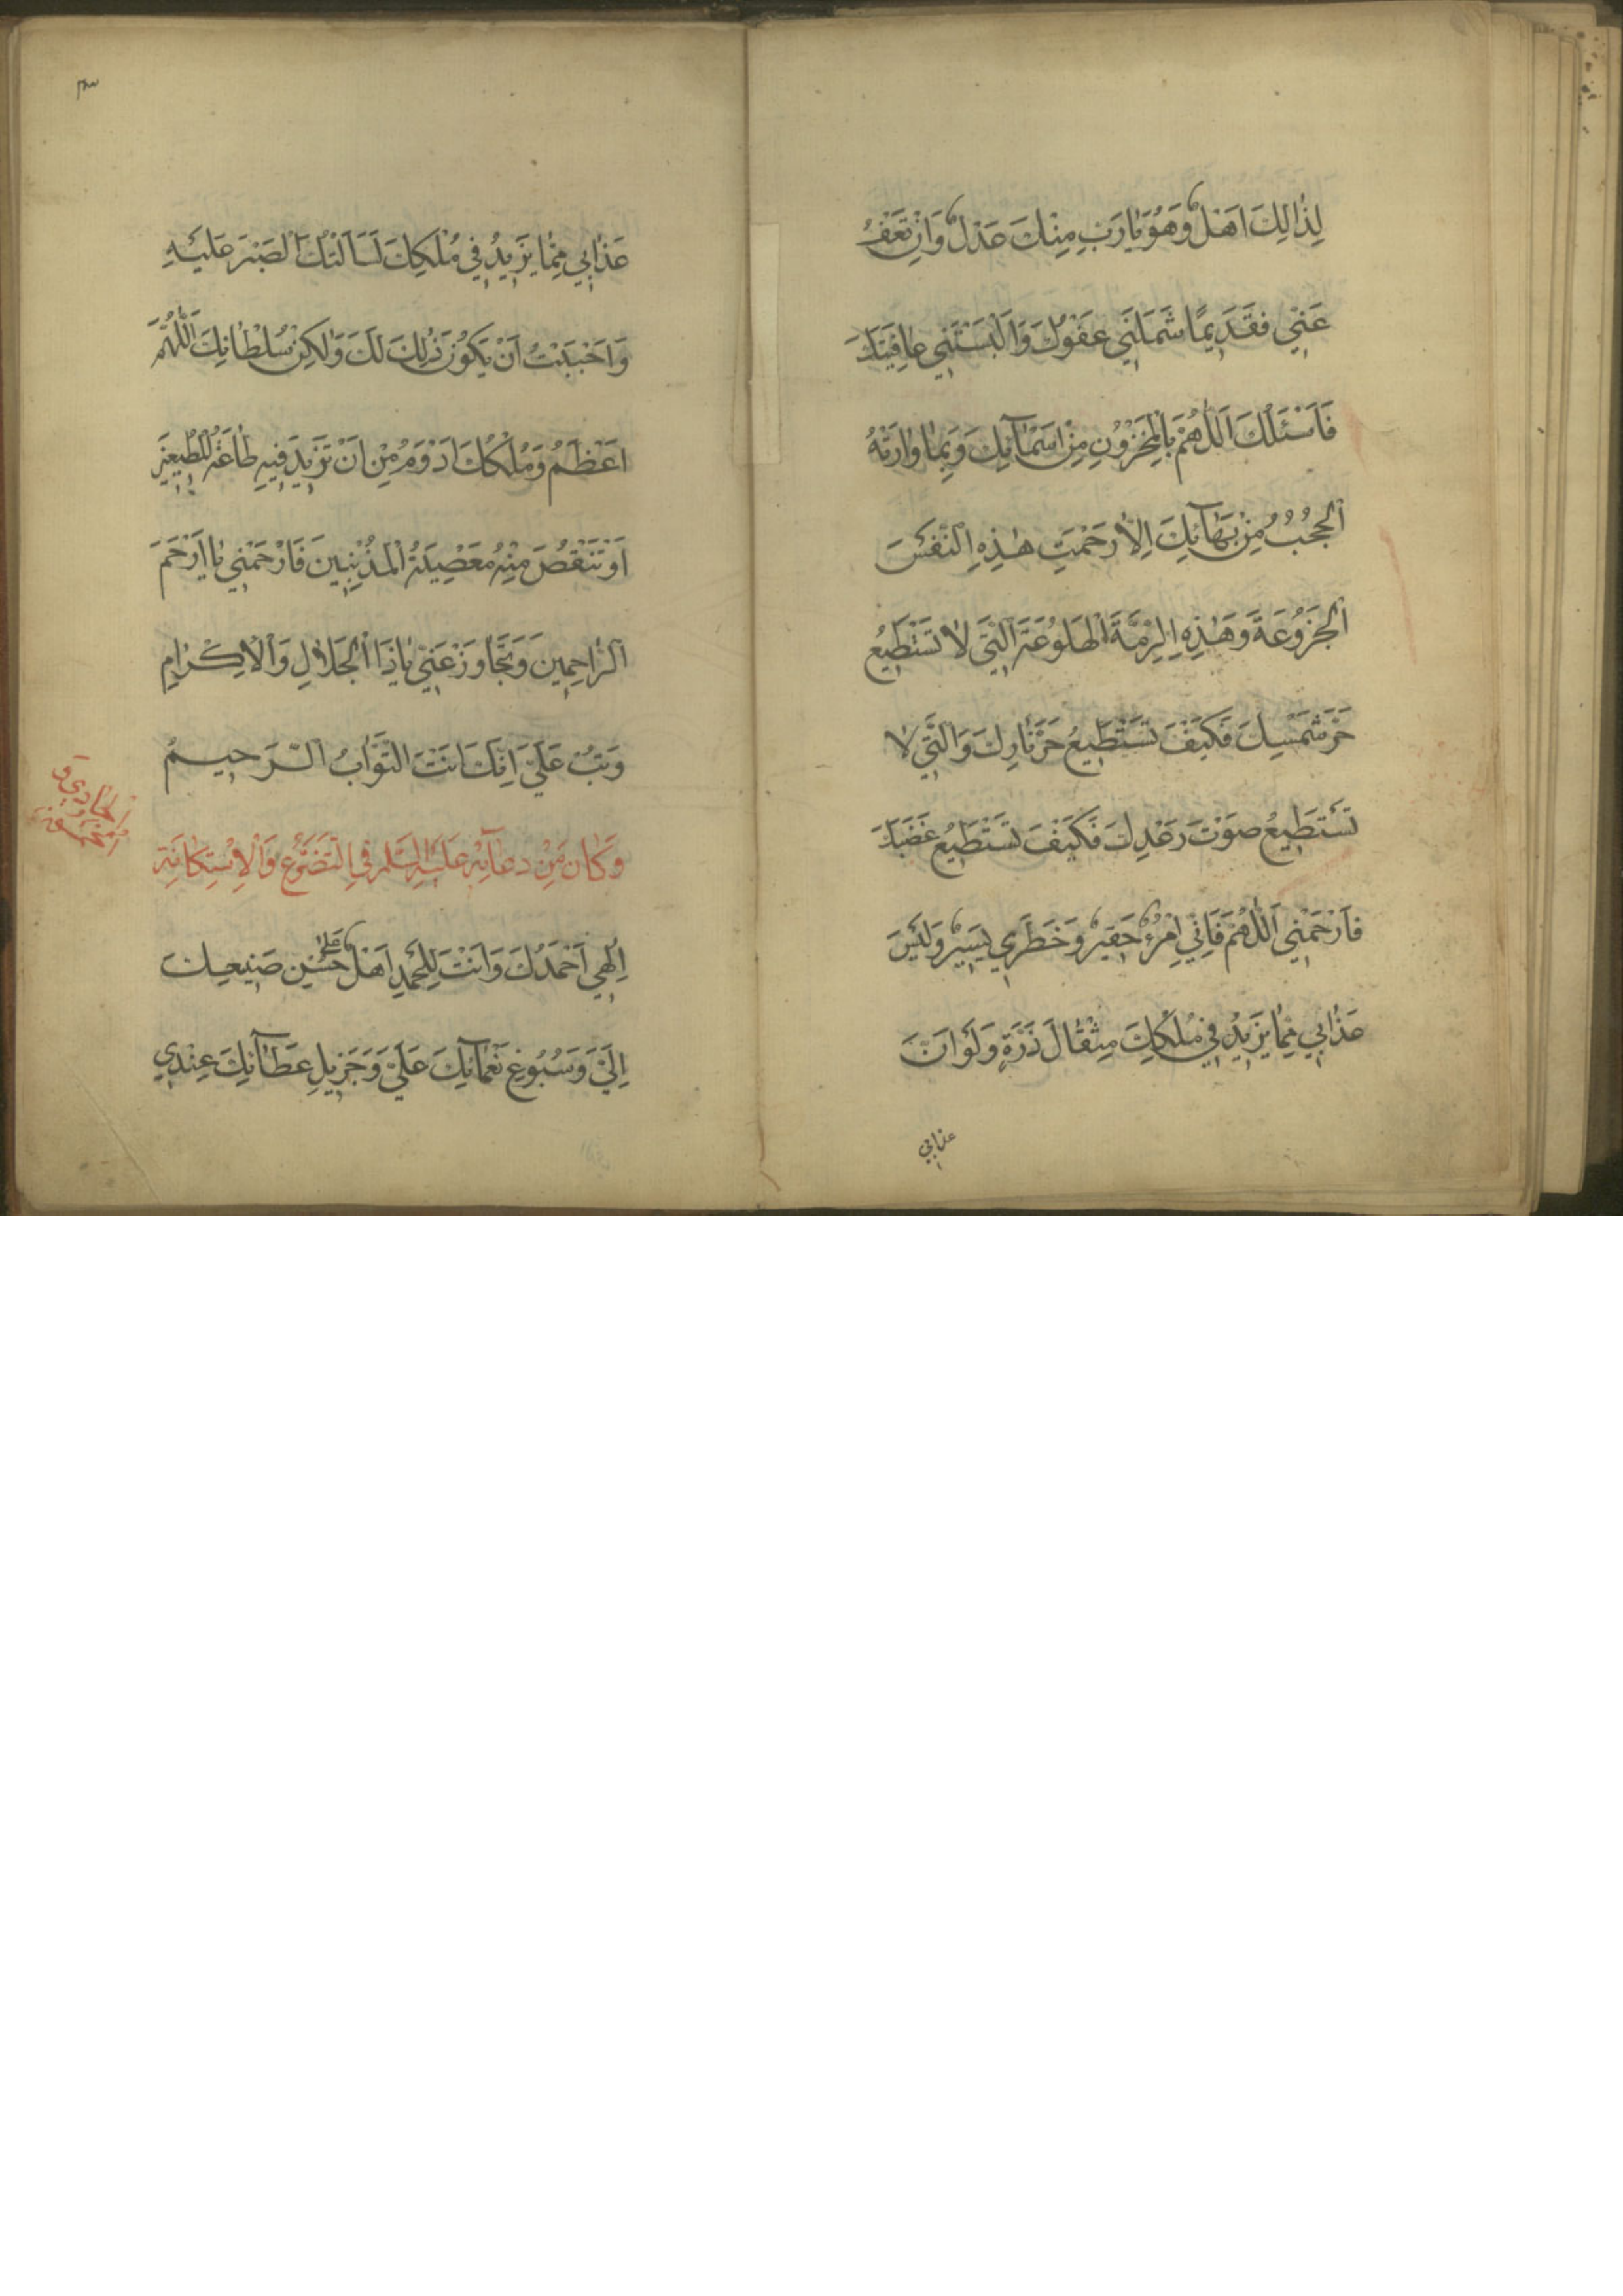 لِذٰلِكَ اَهْلٌ وَهُوَ يٰا رَبِّ مِنْكَ عَدْلٌ وَاِنْ تَعْفُ
عَنّي فَقَديمًا شَمَلَني عَفْوُكَ وَاَلْبَسْتَني عٰافِيَتَكَ
فَاَسْئَلُكَ اَللّٰهُمَّ بِالْمَخْزُونِ مِنْ اَسْمآئِكَ وَبِمٰا وٰارَتْهُ
الْحُجُبُ مِنْ بَهٰآئِكَ اِلاّٰ رَحِمْتَ هٰذِهِ النَّفْسَ
الْجَزُوعَةَ وَهٰذِهِ الرِّمَّةَ الْهَلُوعَةَ الَّتي لاٰ تَسْتَطيعُ
حَرَّ شَمْسِكَ فَكَيْفَ تَسْتَطيعُ حَرَّ نٰارِكَ وَالَّتي لاٰ
تَسْتَطيعُ صَوْتَ رَعْدِكَ فَكَيْفَ تَسْتَطيعُ غَضَبَكَ
فَارْحَمْني اَللّٰهُمَّ فَاِنّي امْرُءٌ حَقيرٌ وَخَطَري يَسيرٌ وَلَيْسَ
عَذٰابي مِمّٰا يَزيدُ في مُلْكِكَ مِثْقٰالَ ذَرَّةٍ وَلَوْ اَنَّ
عذابي
عَذٰابي مِمّٰا يَزيدُ في مُلْكِكَ لَسَاَلْتُكَ الصَّبْرَ عَلَيْهِ
وَاَحْبَبْتُ اَنْ يَكُونَ ذٰلِكَ لَكَ وَلٰكِنْ سُلْطٰانُكَ اَللّٰهُمَّ
اَعْظَمُ وَمُلْكُكَ اَدْوَمُ مِنْ اَنْ تَزيدَ فيهِ طٰاعَةُ الْمُطيعينَ
اَوْ تَنْقُصَ مِنْهُ مَعْصِيَةُ الْمُذْنِبينَ فَارْحَمْني يٰا اَرْحَمَ
الرّٰاحِمينَ وَتَجٰاوَزْ عَنّي يٰا ذَا الْجَلاٰلِ وَالْاِكْرٰامِ
وَتُبْ عَلَيَّ اِنَّكَ اَنْتَ التَّوّٰابُ الرَّحيمُ
وَكٰانَ مِنْ دعآئِهِ عَلَيْهِ السَّلَم فِي التَّضَرُّعِ وَالْاِسْتِكٰانَةِ
اِلٰهي اَحْمَدُكَ وَاَنْتَ لِلْحَمْدِ اَهْلٌ عَلىٰ حُسْنِ صَنيعِكَ
اِلَيَّ وَسُبُوغِ نَعْمٰآئِكَ عَلَيَّ وَجَزيلِ عَطٰآئِكَ عِنْدي